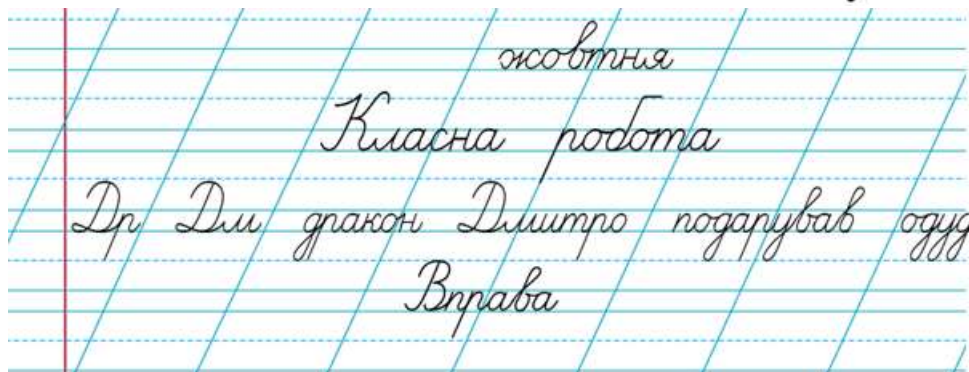 жовтня
Класна робота
Др Дм дракон Дмитро подарував одуд
Вправа